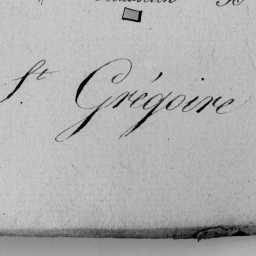 St. Grégoire